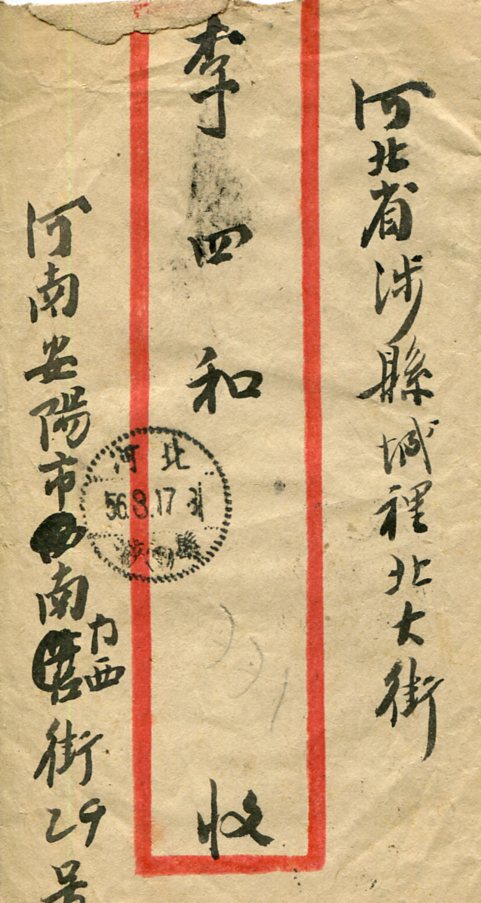 河北省涉縣城裡北大街
李四和 收
河南安陽市南營街29号
力西
河北
56.8.17
縣